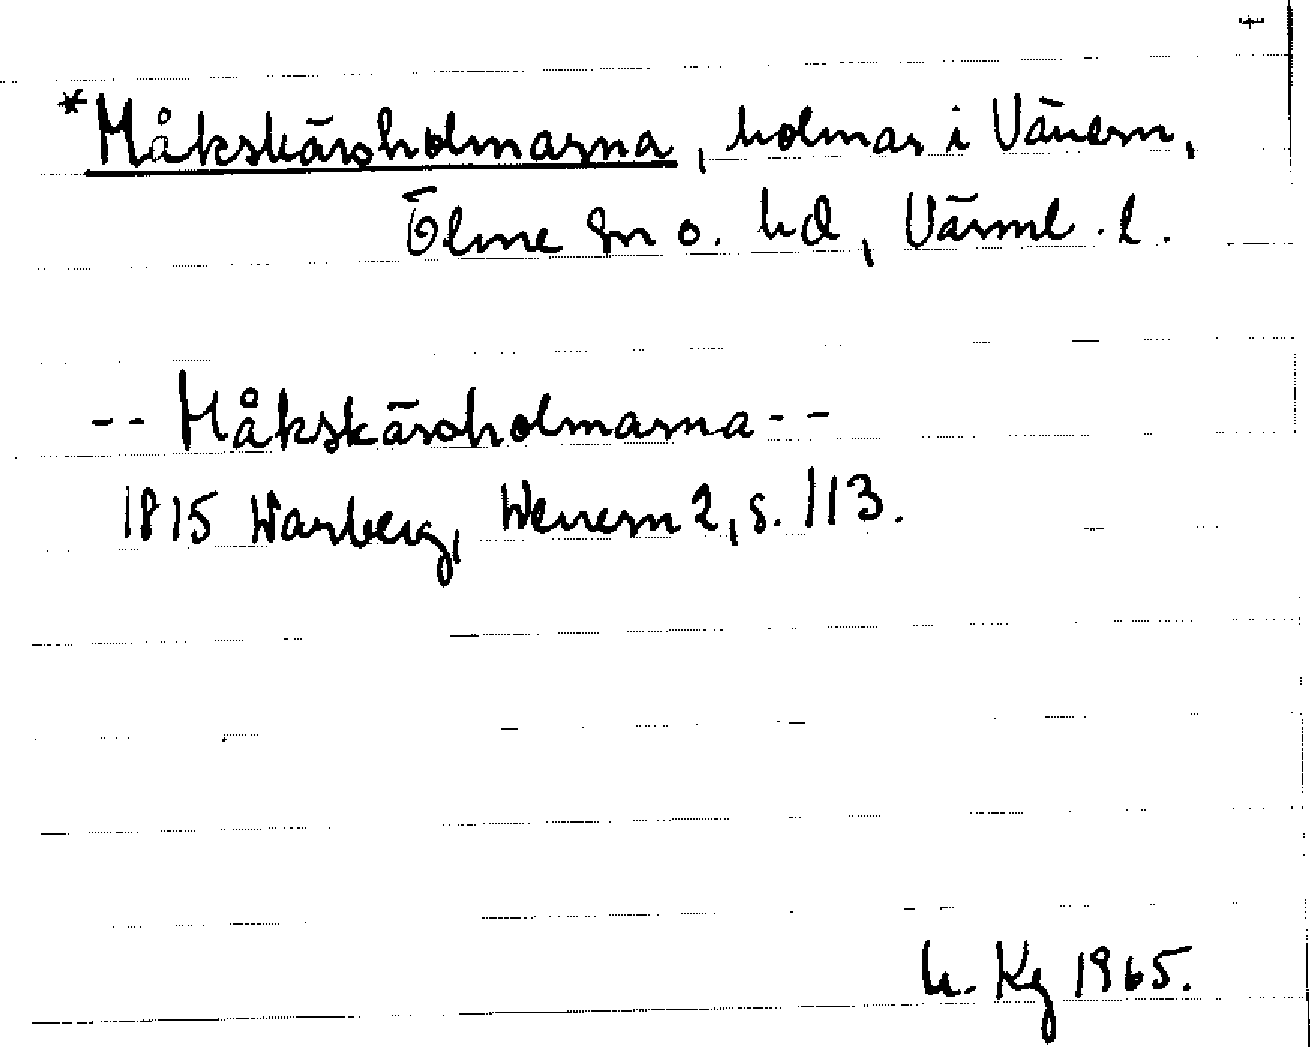 *Måkskärsholmarna, holmar i Vänern,
Ölme sn o. hd, Värml. l.
-- Måkskärsholmarna --
1815 Warberg, Wenern 2, s. 113.
Kg 1965.